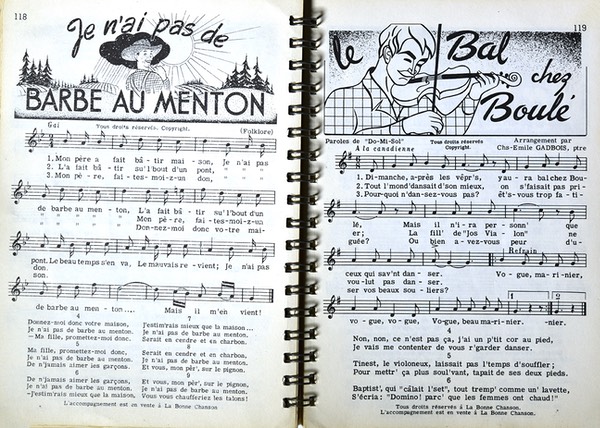 118
Je n'ai pas de
BARBE AU MENTON
Gai
Tous droits réservés. Copyright.
(Folklore)
1. Mon père a fait bâ - tir mai - son, Je n'ai pas
2. L'a fait bâ - tir su'l'bout d'un pont, " " "
3. Mon pè - re, fai - tes-moi-z-un don, " " "
de barbe au men - ton, L'a fait bâ - tir su'l'bout d'un
" " " " " Mon pè - re, fai - tes-moi-z-un
" " " " " Donnez-moi donc votre mai-
pont. Le beau temps s'en va, Le mauvais re - vient; Je n'ai pas
don.
son.
de barbe au men - ton .... Mais il m'en vient!
4
Donnez-moi donc votre maison,
Je n'ai pas de barbe au menton.
— Ma fille, promettez-moi donc.
5
Ma fille, promettez-moi donc,
Je n'ai pas de barbe au menton.
De n'jamais aimer les garçons,
6
De n'jamais aimer les garçons,
Je n'ai pas de barbe au menton.
—J'estim'rais mieux que la maison,
7
J'estim'rais mieux que la maison...
Je n'ai pas de barbe au menton.
Serait en cendre et en charbon.
8
Serait en cendre et en charbon,
Je n'ai pas de barbe au menton.
Et vous, mon pèr', sur le pignon,
9
Et vous, mon pèr', sur le pignon,
Je n'ai pas de barbe au menton.
Vous vous chaufferiez les talons!
L'accompagnement est en vente à La Bonne Chanson.
119
le Bal chez Boulé
Paroles de "Do-Mi-Sol"
Tous droits réservés
Copyright.
Arrangement par
Chs-Emile GADBOIS, ptre
A la canadienne
1. Dimanche, a-près les vêpr's, y au - ra bal chez Bou-
2. Tout l'mond'dansait d'son mieux, on s'faisait pas pri-
3. Pour-quoi n'dan-sez-vous pas? êt's-vous trop fa - ti-
lé, Mais il n'i - ra per - sonn' que
er; La fill' de "Jos Via - lon" ne
guée? Ou bien a - vez-vous peur d'u-
Refrain
ceux qui sav'nt dan - ser. Vo - gue, ma - ri - nier,
vou - lut pas dan - ser.
ser vos beaux sou - liers?
1 2
vo - gue, vo - gue, Vo-gue, beau ma-ri-nier. -nier.
4
Non, non, ce n'est pas ça, j'ai un p'tit cor au pied,
Je vais me contenter de vous r'garder danser.
5
Tinest, le violoneux, laissait pas l'temps d'souffler;
Pour mettr' ça plus soul'vant, tapait de ses deux pieds.
6
Baptist', qui "câlait l'set", tout tremp' comme un' lavette,
S'écria: "Domino! parc' que les femmes ont chaud!"
Tous droits réservés
L'accompagnement est en vente à La Bonne Chanson.